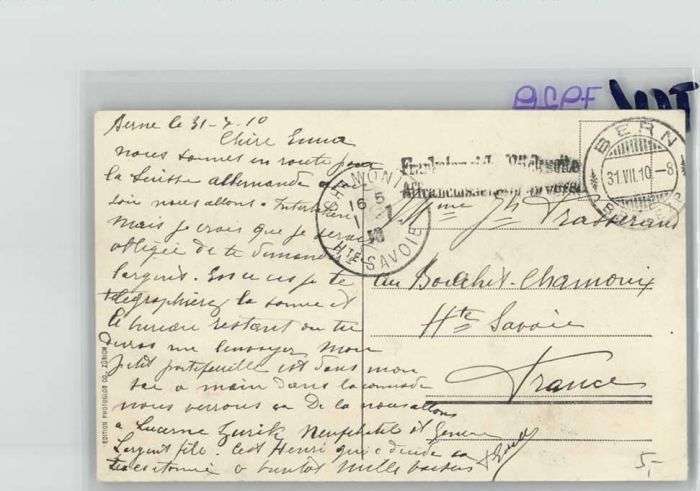 Berne le 31-7-10
Chère Emma
nous sommes en route pour
la Suisse allemande
soir nous allons a Interlaken
mais je crois que je serai
obligée de te demander
l'argent. En ce cas je te
télégraphierez la somme et
le bureau restant ou tu
devras me l'envoyer. Mon
petit portefeuille est dans mon
sac a main dans la commode
nous verrons ca De la nous allons
a Lucerne Zurik Neufchatel et Genève
L'argent file. C'est Henri qui
a bientôt mille baisers
EDITION PHOTOGLOB CO., ZÜRICH
CHAMONIX
16 5
HTE SAVOIE
Frankatur Rückseite
Affranchissement au verso
BERN
31.VII.10-8
Mme
au Bouchet-Chamonix
Hte Savoie
France
5,-